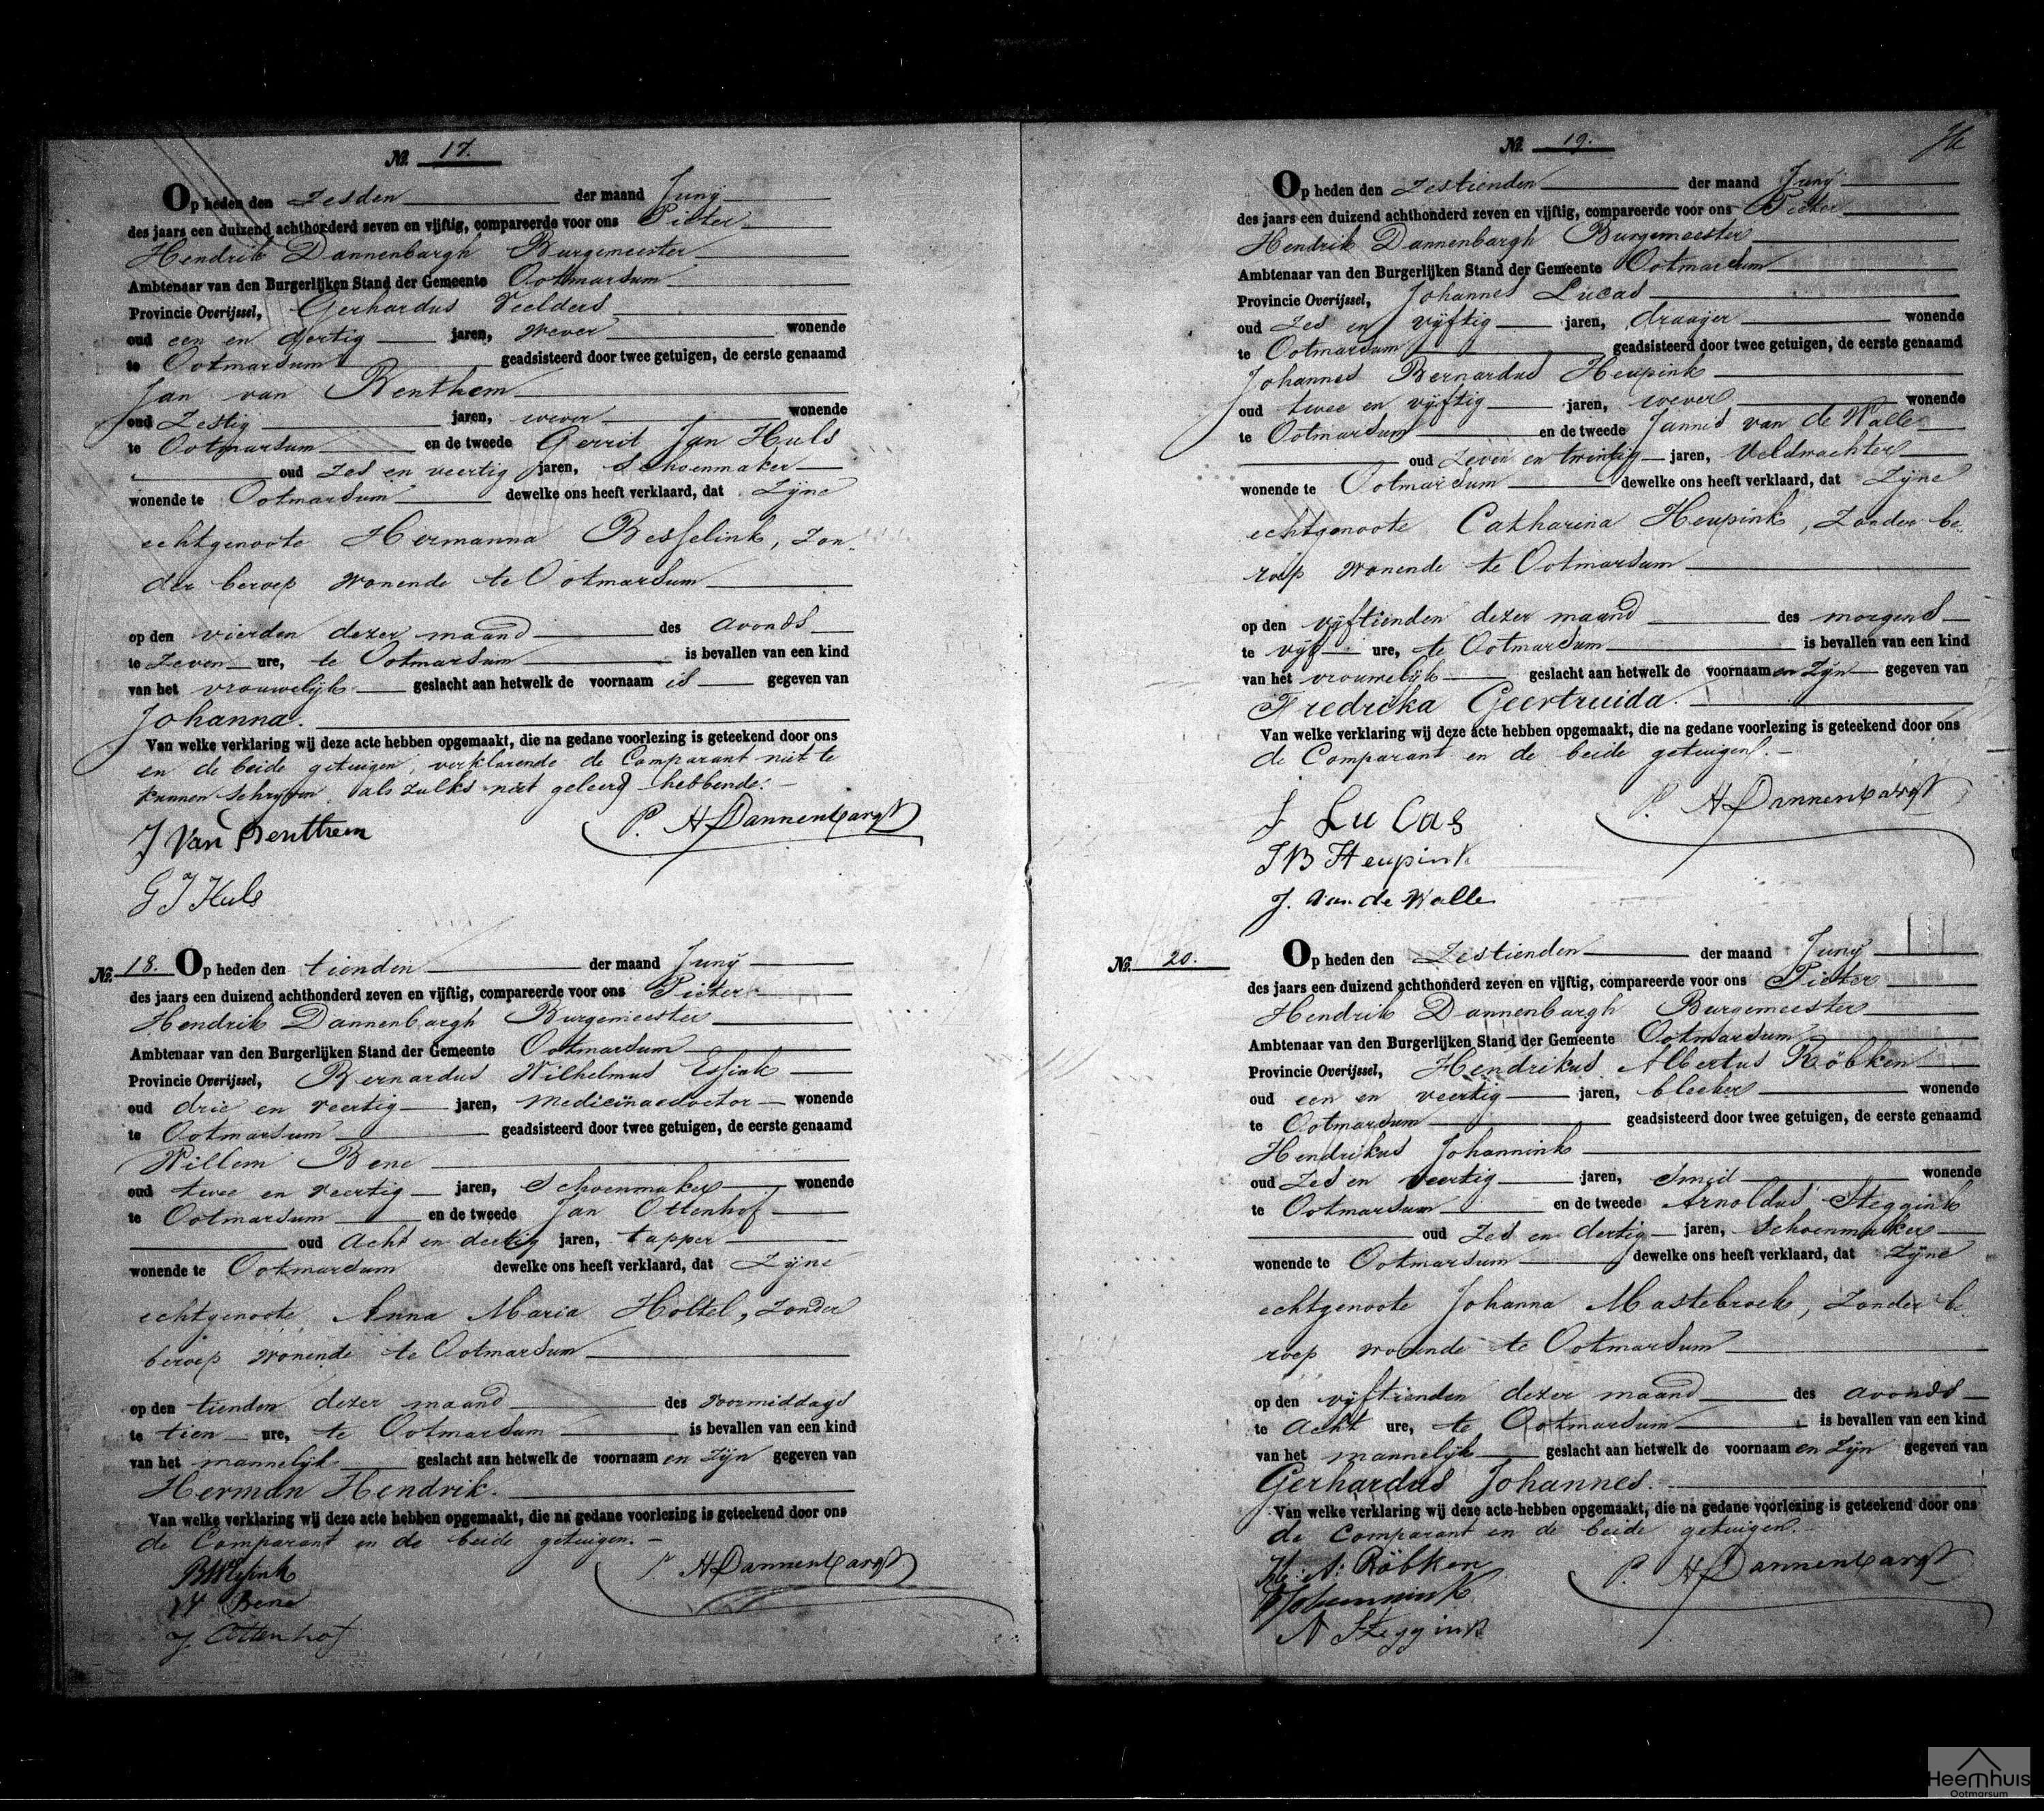 No. 17.
Op heden den zesden der maand Junij
des jaars een duizend achthonderd zeven en vijftig, compareerde voor ons Pieter
Hendrik Dannenbargh Burgemeester
Ambtenaar van den Burgerlijken Stand der Gemeente Ootmarsum
Provincie Overijssel, Gerhardus Veelders
oud een en dertig jaren, wever wonende
te Ootmarsum geadsisteerd door twee getuigen, de eerste genaamd
Jan van Benthem
oud Zestig jaren, wever wonende
te Ootmarsum en de tweede Gerrit Jan Huls
oud zes en veertig jaren, Schoenmaker
wonende te Ootmarsum dewelke ons heeft verklaard, dat Zijne
echtgenoote Hermanna Besselink, zon-
der beroep wonende te Ootmarsum
op den vierden dezer maand des avonds
te zeven ure, te Ootmarsum is bevallen van een kind
van het vrouwelijk geslacht aan hetwelk de voornaam is gegeven van
Johanna.
Van welke verklaring wij deze acte hebben opgemaakt, die na gedane voorlezing is geteekend door ons
en de beide getuigen, verklarende de Comparant niet te
kunnen schrijven als zulks niet geleerd hebbende.-
J Van Benthem P. H Dannenbargh
G J Huls
No. 18. Op heden den tienden der maand Junij
des jaars een duizend achthonderd zeven en vijftig, compareerde voor ons Pieter
Hendrik Dannenbargh Burgemeester
Ambtenaar van den Burgerlijken Stand der Gemeente Ootmarsum
Provincie Overijssel, Bernardus Wilhelmus
oud drie en veertig jaren, medicinaedoctor wonende
te Ootmarsum geadsisteerd door twee getuigen, de eerste genaamd
Willem Bene
oud twee en veertig jaren, Schoenmaker wonende
te Ootmarsum en de tweede Jan Ottenhof
oud acht en dertig jaren, tapper
wonende te Ootmarsum dewelke ons heeft verklaard, dat Zijne
echtgenoote Anna Maria Holtel, zonder
beroep wonende te Ootmarsum
op den tienden dezer maand des voormiddags
te tien ure, te Ootmarsum is bevallen van een kind
van het mannelijk geslacht aan hetwelk de voornaam en zijn gegeven van
Herman Hendrik.
Van welke verklaring wij deze acte hebben opgemaakt, die na gedane voorlezing is geteekend door ons
de Comparant en de beide getuigen.-
P. H Dannenbargh
W Bene
J Ottenhof
No. 19.
Op heden den zestienden der maand Junij
des jaars een duizend achthonderd zeven en vijftig, compareerde voor ons Pieter
Hendrik Dannenbargh Burgemeester
Ambtenaar van den Burgerlijken Stand der Gemeente Ootmarsum
Provincie Overijssel, Johannes Lucas
oud zes en vijftig jaren, draaijer wonende
te Ootmarsum geadsisteerd door twee getuigen, de eerste genaamd
Johannes Bernardus Heupink
oud twee en vijftig jaren, wever wonende
te Ootmarsum en de tweede Jannes van de Walle
oud zeven en twintig jaren, Veldwachter
wonende te Ootmarsum dewelke ons heeft verklaard, dat Zijne
echtgenoote Catharina Heupink, zonder be-
roep wonende te Ootmarsum
op den vijftienden dezer maand des morgens
te vijf ure, te Ootmarsum is bevallen van een kind
van het vrouwelijk geslacht aan hetwelk de voornaam en zijn gegeven van
Fredrika Geertruida.
Van welke verklaring wij deze acte hebben opgemaakt, die na gedane voorlezing is geteekend door ons
de Comparant en de beide getuigen.-
J Lucas P. H Dannenbargh
J B Heupink
J. Van de Walle
No. 20. Op heden den zestienden der maand Junij
des jaars een duizend achthonderd zeven en vijftig, compareerde voor ons Pieter
Hendrik Dannenbargh Burgemeester
Ambtenaar van den Burgerlijken Stand der Gemeente Ootmarsum
Provincie Overijssel, Hendrikus Albertus Röbken
oud een en veertig jaren, bleeker wonende
te Ootmarsum geadsisteerd door twee getuigen, de eerste genaamd
Hendrikus Johannink
oud zes en veertig jaren, Smid wonende
te Ootmarsum en de tweede Arnoldus Steggink
oud zes en dertig jaren, Schoenmaker
wonende te Ootmarsum dewelke ons heeft verklaard, dat Zijne
echtgenoote Johanna Mastebroek, zonder be-
roep wonende te Ootmarsum
op den vijftienden dezer maand des avonds
te acht ure, te Ootmarsum is bevallen van een kind
van het mannelijk geslacht aan hetwelk de voornaam en zijn gegeven van
Gerhardus Johannes.
Van welke verklaring wij deze acte hebben opgemaakt, die na gedane voorlezing is geteekend door ons
de Comparant en de beide getuigen.-
H: A: Röbken P. H Dannenbargh
Johannink
A Steggink
Heemhuis
Ootmarsum